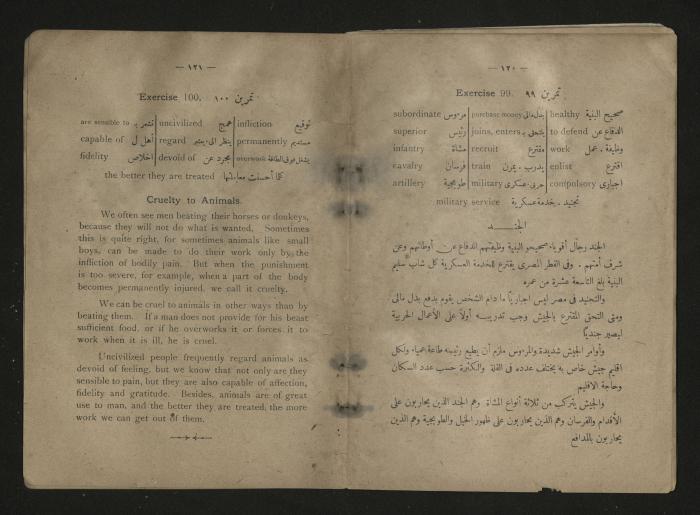 — ١٢٠ —
Exercise 99. تمرين ٩٩
subordinate مرءوس purchase money بدل مالى healthy صحيح البنية
superior رئيس joins, enters يلتحق بـ to defend الدفاع عن
infantry مشاة recruit مقترع work وظيفة ـ عمل
cavalry فرسان train يدرب ـ يمرن enlist اقترع
artillery طوبجية military حربى ـ عسكرى compulsory اجبارى
military service تجنيد ـ خدمة عسكرية
الجند
الجند رجال أقوياء صحيحو البنية وظيفتهم الدفاع عن أوطانهم وعن
شرف أمتهم . وفى القطر المصرى يقترع للخدمة العسكرية كل شاب سليم
البنية بلغ التاسعة عشرة من عمره
والتجنيد فى مصر ليس اجباريا ما دام الشخص يقوم بدفع بدل مالى
ومتى التحق المقترع بالجيش وجب تدريبه أولا على الأعمال الحربية
ليصير جنديا
وأوامر الجيش شديدة والمرءوس ملزم أن يطيع رئيسه طاعة عمياء ولكل
اقليم جيش خاص به يختلف عدده فى القلة والكثرة حسب عدد السكان
وحاجة الاقليم
والجيش يتركب من ثلاثة أنواع المشاة وهم الجند الذين يحاربون على
الأقدام والفرسان وهم الذين يحاربون على ظهور الخيل والطوبجية وهم الذين
يحاربون بالمدافع
— ١٢١ —
Exercise 100. تمرين ١٠٠
are sensible to تشعر بـ uncivilized همج infliction توقيع
capable of أهل لـ regard ينظر الى ـ يعتبر permanently مستديم
fidelity اخلاص devoid of مجرد عن overwork يشغل فوق الطاقة
the better they are treated كلما أحسنت معاملتها
Cruelty to Animals.
We often see men beating their horses or donkeys,
because they will not do what is wanted. Sometimes
this is quite right, for sometimes animals like small
boys, can be made to do their work only by the
infliction of bodily pain. But when the punishment
is too severe, for example, when a part of the body
becomes permanently injured, we call it cruelty.
We can be cruel to animals in other ways than by
beating them. If a man does not provide for his beast
sufficient food, or if he overworks it or forces it to
work when it is ill, he is cruel.
Uncivilized people frequently regard animals as
devoid of feeling, but we know that not only are they
sensible to pain, but they are also capable of affection,
fidelity and gratitude. Besides, animals are of great
use to man, and the better they are treated, the more
work we can get out of them.